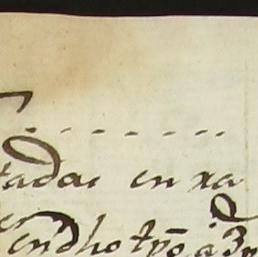 tadas en xa
en dho tpō a 3